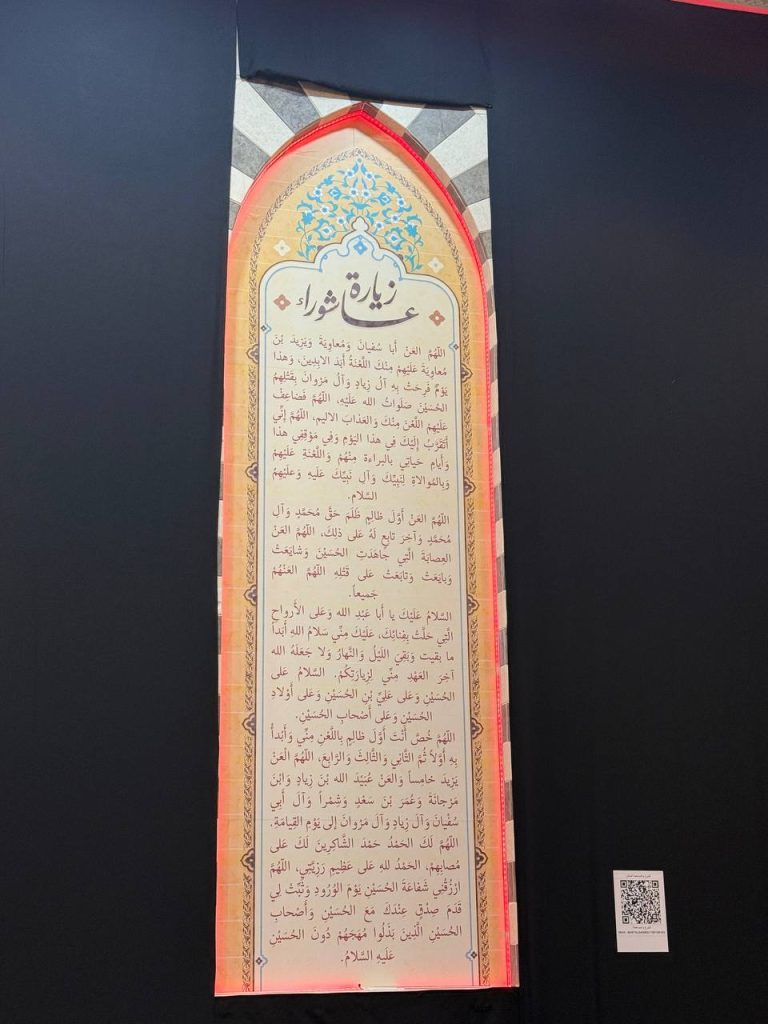 زيارة
عاشوراء
اللّهُمَّ العَنْ أبا سُفيانَ وَمُعاوِيَةَ وَيَزِيدَ بْنَ
مُعاوِيَةَ عَلَيهِمْ مِنْكَ اللَّعْنَةُ أبَدَ الابِدِينَ، وَهذا
يَوْمٌ فَرِحَتْ بِهِ آلُ زِيادٍ وَآلُ مَرْوانَ بِقَتْلِهِمُ
الحُسَيْنَ صَلَواتُ الله عَلَيْهِ، اللّهُمَّ فَضاعِفْ
عَلَيْهِمُ اللَّعْنَ مِنْكَ وَالعَذابَ الاليم، اللّهُمَّ إنِّي
أتَقَرَّبُ إلَيْكَ فِي هذا اليَوْمِ وَفِي مَوْقِفِي هذا
وَأيامِ حَياتِي بِالبراءة مِنْهُمْ وَاللَّعْنَةِ عَلَيْهِمْ
وَبِالمُوالاةِ لِنَبِيِّكَ وَآلِ نَبِيِّكَ عَلَيهِ وَعليْهِمُ
السَّلام.
اللّهُمَّ العَنْ أوَّلَ ظالِمٍ ظَلَمَ حَقَّ مُحَمَّدٍ وَآلِ
مُحَمَّدٍ وَآخِرَ تابِعٍ لَهُ عَلى ذلِكَ، اللّهُمَّ العَنْ
العِصابَةَ الَّتِي جاهَدَتِ الحُسَيْنَ وَشايَعَتْ
وَبايَعَتْ وَتابَعَتْ عَلى قَتْلِهِ اللّهُمَّ العَنْهُمْ
جَميعاً.
السَّلامُ عَلَيْكَ يا أبا عَبْدِ الله وَعَلى الأرواحِ
الَّتِي حَلَّتْ بِفِنائِكَ، عَلَيْكَ مِنِّي سَلامُ اللهِ أبَداً
ما بقيت وَبَقِيَ اللَيْلُ وَالنَّهارُ وَلا جَعَلَهُ الله
آخِرَ العَهْدِ مِنِّي لِزِيارَتِكُمْ. السَّلامُ عَلى
الحُسَيْنِ وَعَلى عَلِيِّ بْنِ الحُسَيْنِ وَعَلى أوْلادِ
الحُسَيْنِ وَعَلى أصْحابِ الحُسَيْنِ.
اللّهُمَّ خُصَّ أنْتَ أوَّلَ ظالِمٍ بِاللَّعْنِ مِنِّي وَأبْدأْ
بِهِ أوَّلاً ثُمَّ الثَّانِي وَالثَّالِثَ وَالرَّابِعَ، اللّهُمَّ الْعَنْ
يَزِيدَ خامِساً وَالعَنْ عُبَيْدَ الله بْنَ زِيادٍ وَابْنَ
مَرْجانَةَ وَعُمَرَ بْنَ سَعْدٍ وَشِمْراً وَآلَ أبِي
سُفْيانَ وَآلَ زِيادٍ وَآلَ مَرْوانَ إلى يَوْمِ القِيامَةِ.
اللّهُمَّ لَكَ الحَمْدُ حَمْدَ الشَّاكِرِينَ لَكَ عَلى
مُصابِهِمْ، الحَمْدُ للهِ عَلى عَظِيمِ رَزِيَّتِي، اللّهُمَّ
ارْزُقْنِي شَفاعَةَ الحُسَيْنِ يَوْمَ الوُرُودِ وَثَبِّتْ لِي
قَدَمَ صِدْقٍ عِنْدَكَ مَعَ الحُسَيْنِ وَأصْحابِ
الحُسَيْنِ الَّذِينَ بَذَلُوا مُهَجَهُمْ دُونَ الحُسَيْنِ
عَلَيهِ السَّلامُ.